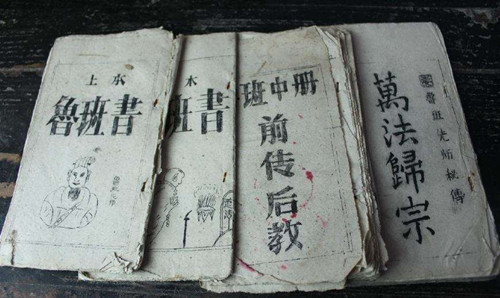 土木
魯班書
木
班書
班中册
前传后教
魯班先师秘傳
萬法歸宗